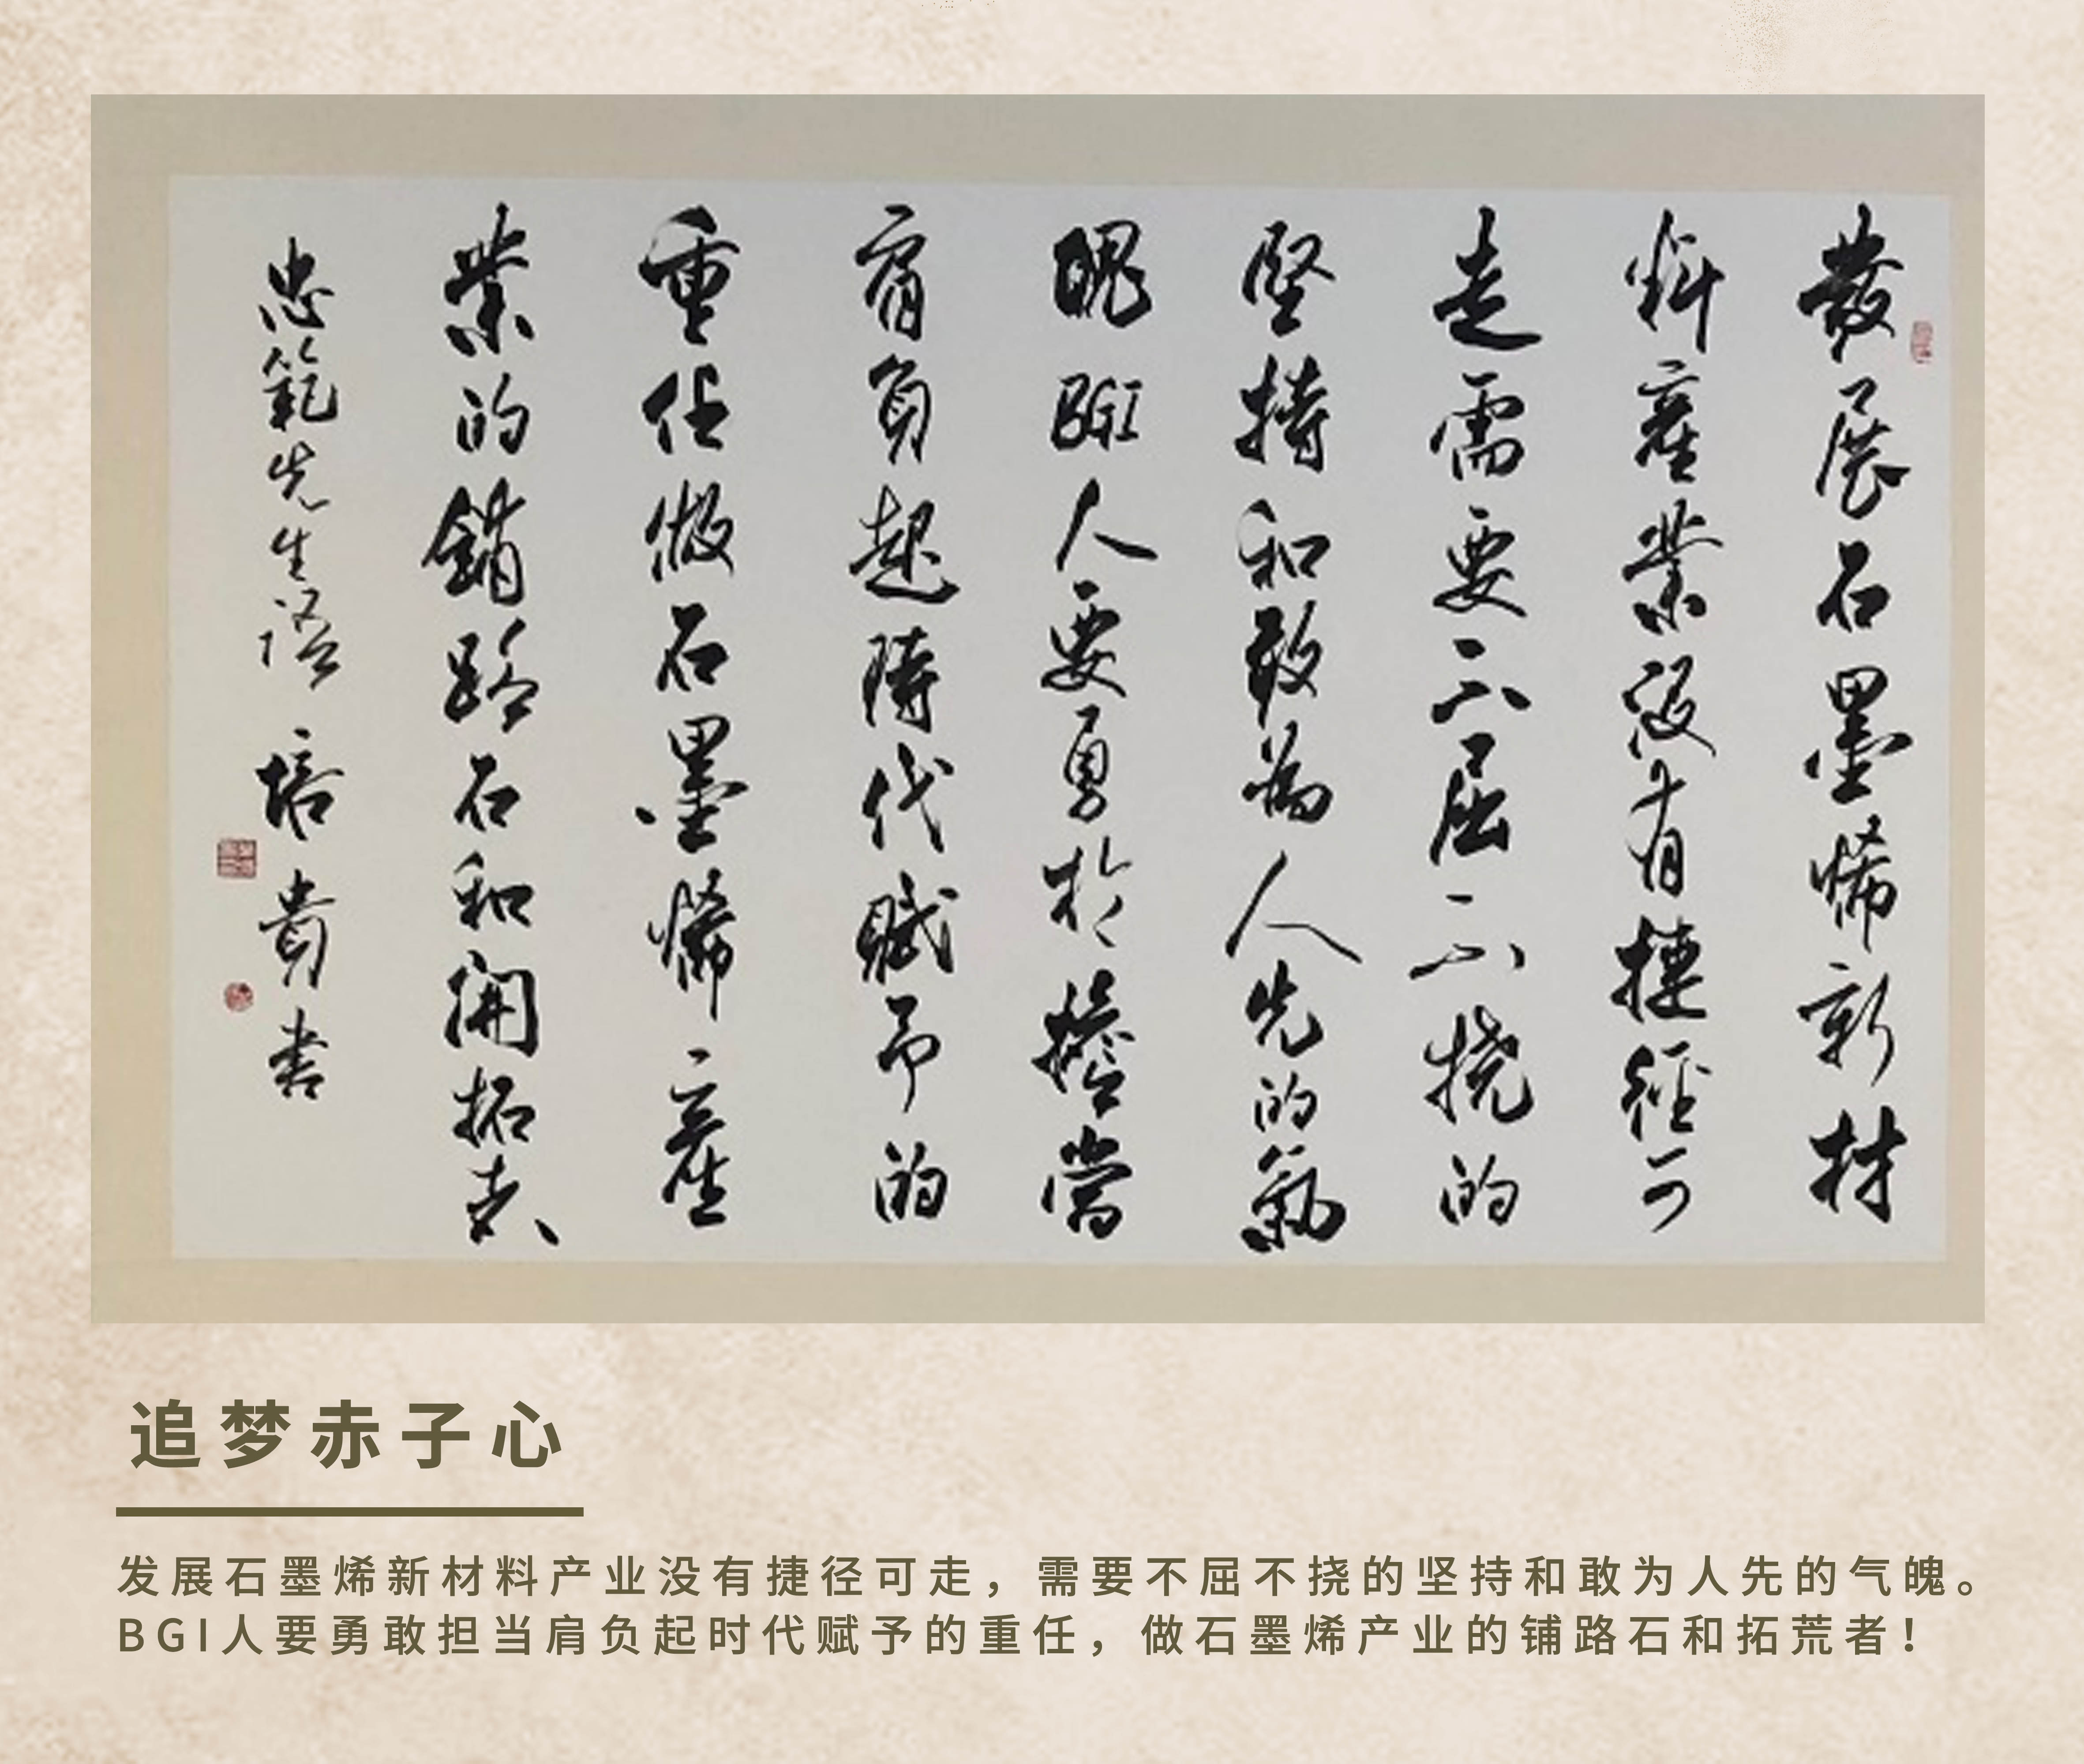 發展石墨烯新材
料產業没有捷徑可
走需要不屈不挠的
堅持和敢為人先的氣
魄BGI人要勇於擔當
肩負起時代賦予的
重任做石墨烯產
業的鋪路石和開拓者
忠範先生语 培貴书
追梦赤子心
发展石墨烯新材料产业没有捷径可走，需要不屈不挠的坚持和敢为人先的气魄。
BGI人要勇敢担当肩负起时代赋予的重任，做石墨烯产业的铺路石和拓荒者！